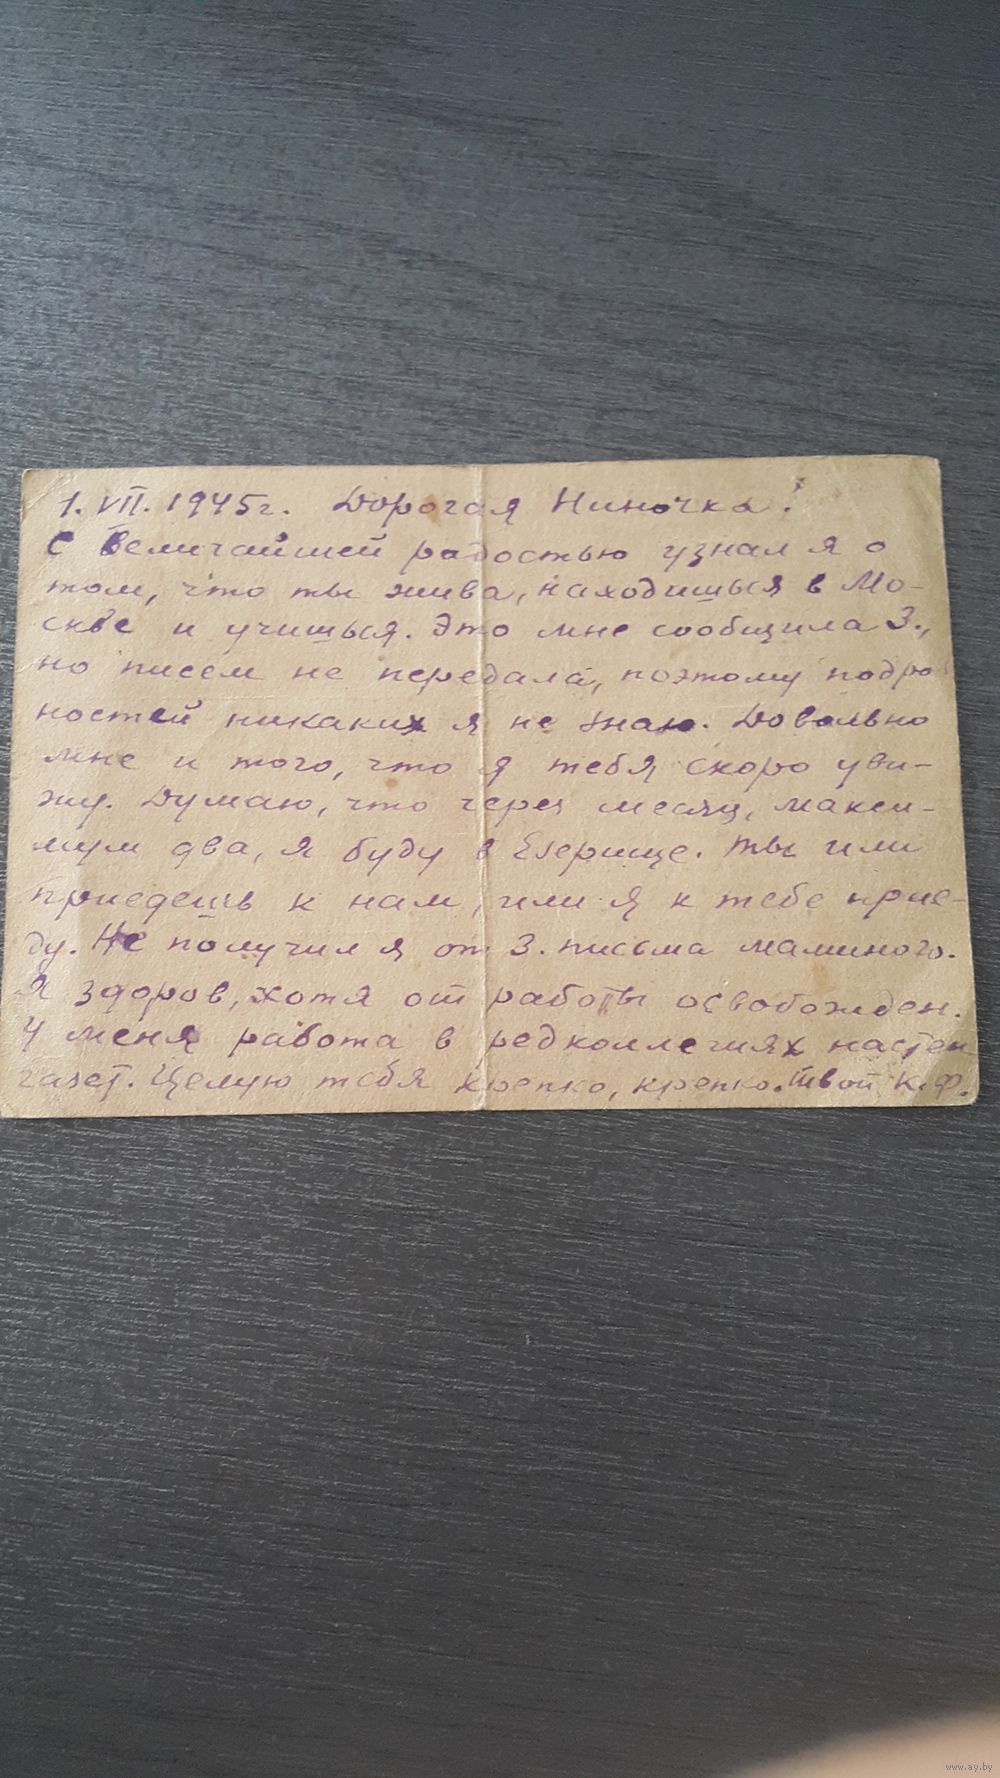 1. VII. 1945г. Дорогая Ниночка!
С величайшей радостью узнал я о
том, что ты жива, находишься в Мо-
скве и учишься. Это мне сообщила З.,
но писем не передала, поэтому подро
ностей никаких я не знаю. Довольно
мне и того, что я тебя скоро уви-
жу. Думаю, что через месяц, макси-
мум два, я буду в Езерище. Ты или
приедешь к нам, или я к тебе прие-
ду. Не получил я от З. письма маминого.
Я здоров, хотя от работы освобожден.
У меня работа в редколлегиях настен
газет. Целую тебя крепко, крепко. Твой К.Ф.
www.ay.by